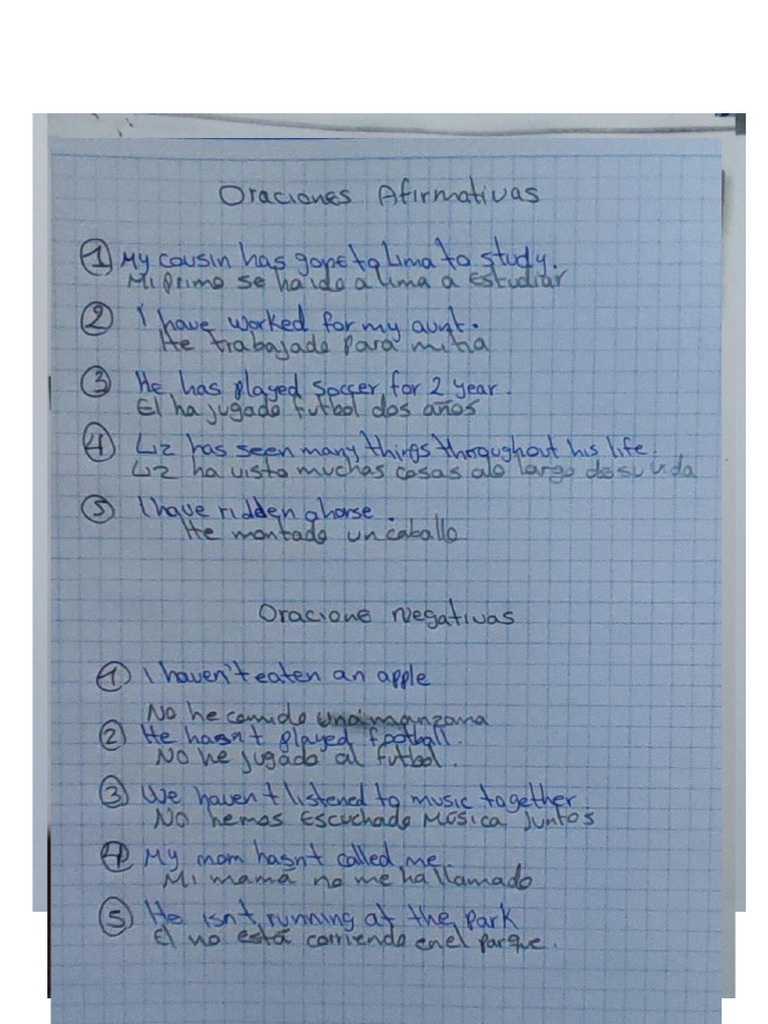 Oraciones Afirmativas
① My cousin has gone to Lima to study.
Mi primo se ha ido a Lima a estudiar
② I have worked for my aunt.
He trabajado para mi tia
③ He has played soccer for 2 year.
El ha jugado futbol dos años
④ Liz has seen many things throughout his life.
Liz ha visto muchas cosas alo largo de su vida
⑤ I have ridden a horse.
He montado un caballo
Oracione Negativas
① I haven't eaten an apple
No he comido una manzana
② He hasn't played football.
No he jugado al futbol.
③ We haven't listened to music together.
No hemos escuchado Música juntos
④ My mom hasn't called me.
Mi mamá no me ha llamado
⑤ He isn't running at the park
El no está corriendo en el parque.